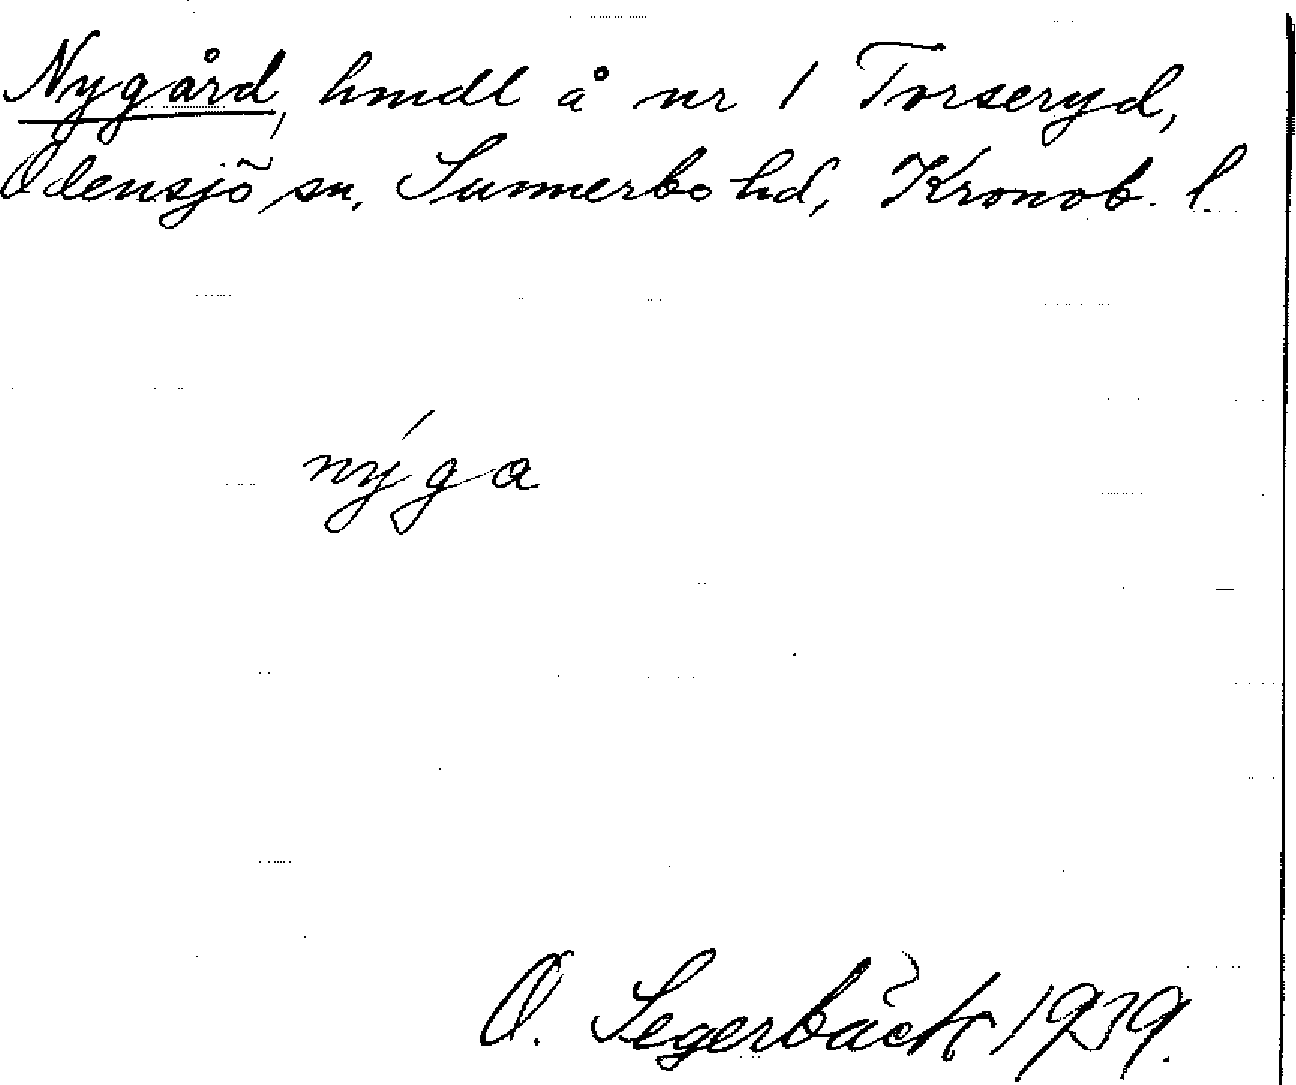 Nygård, hmdl å nr 1 Torseryd,
Odensjö sn, Sunnerbo hd, Kronob. l.
nýga
O. Segerbäck 1939.